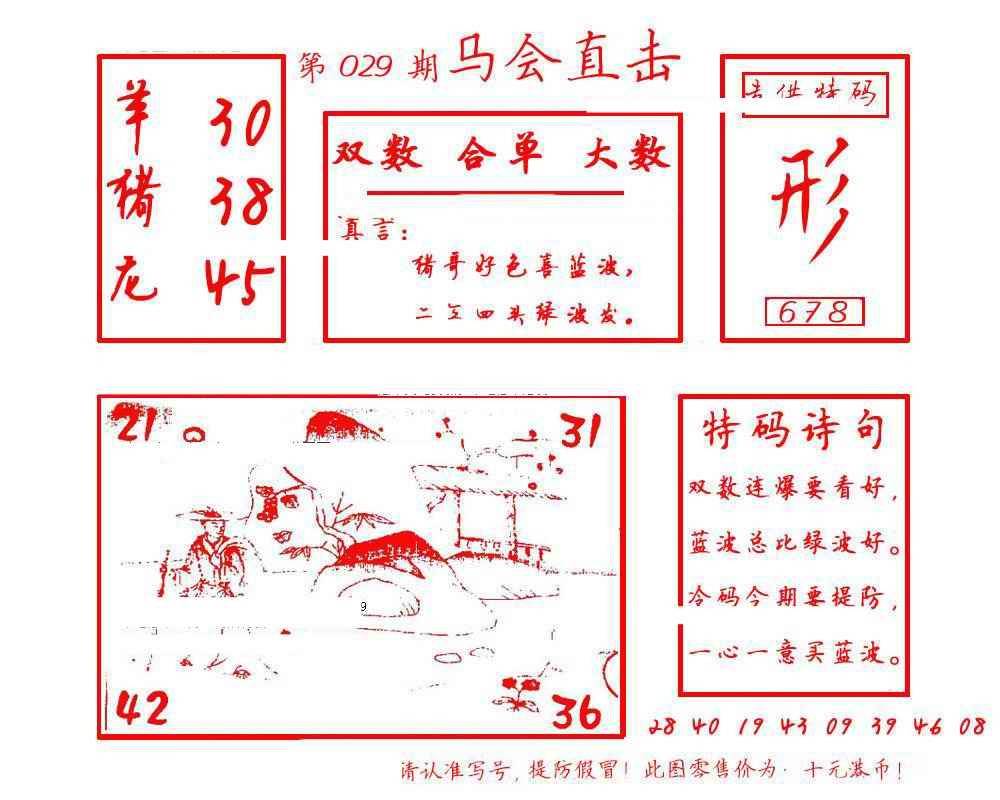 第 029 期 马会直击
羊 30
猪 38
龙 45
双数 合单 大数
真言：
猪哥好色喜蓝波，
二五四头绿波发。
供特码
形
678
21
31
9
42
36
特码诗句
双数连爆要看好，
蓝波总比绿波好。
冷码今期要提防，
一心一意买蓝波。
28 40 19 43 09 39 46 08
请认准写号，提防假冒！此图零售价为·十元港币！